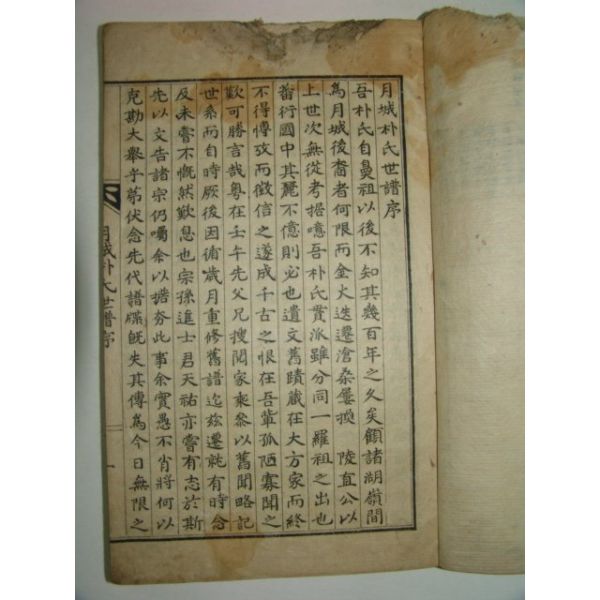 月城朴氏世譜序
吾朴氏自鼻祖以後不知其幾百年之久矣顧諸湖嶺間
爲月城後裔者何限而金火迭遷滄桑屢換 陵直公以
上世次無從考据噫吾朴氏貫派雖分同一羅祖之出也
蕃衍國中其麗不億則必也遺文舊蹟藏在大方家而終
不得傳攷而徵信之遂成千古之恨在吾輩孤陋寡聞之
歎可勝言哉粤在壬午先父兄搜閱家乘參以舊聞略記
世系而自時厥後因循歲月重修舊譜迄玆遷就有時念
及未嘗不慨然歎息也宗孫進士君天祐亦嘗有志於斯
先以文告諸宗仍囑余以搭夯此事余實愚不肖將何以
克勘大擧乎第伏念先代譜牒旣失其傳爲今日無限之
月城朴氏世譜序
一